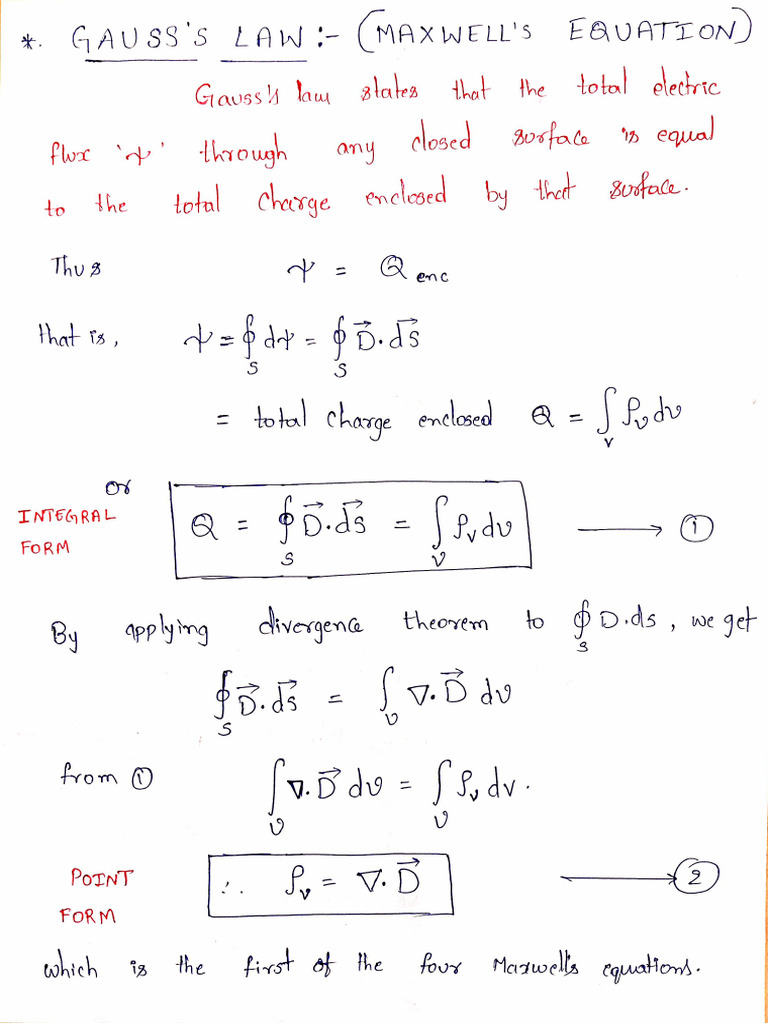 *. GAUSS'S LAW :- (MAXWELL'S EQUATION)
Gauss's law states that the total electric
flux 'ψ' through any closed surface is equal
to the total charge enclosed by that surface.
Thus ψ = Q enc
that is, ψ = ∮_S dψ = ∮_S D⃗. dS⃗
= total charge enclosed Q = ∫_v ρ_v dv
or
INTEGRAL FORM Q = ∮_S D⃗. dS⃗ = ∫_v ρ_v dv ⟶ ①
By applying divergence theorem to ∮_S D.ds, we get
∮_S D⃗. dS⃗ = ∫_v ∇. D⃗ dv
from ① ∫_v ∇. D⃗ dv = ∫_v ρ_v dv.
POINT FORM ∴ ρ_v = ∇. D⃗ ⟶ ②
which is the first of the four Maxwell's equations.